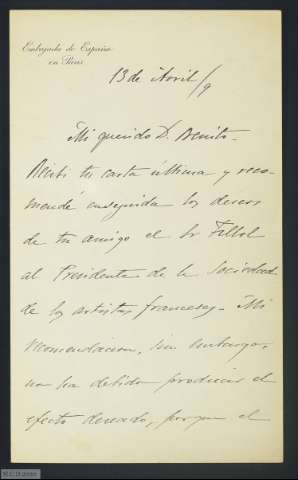 Embajada de España
en Paris
13 de Abril/9
Mi querido D. Benito -
Recibí tu carta última y reco-
mendé enseguida los deseos
de tu amigo el Sr Fillol
al Presidente de la Sociedad
de los artistas franceses - Mi
recomendacion, sin embargo,
no ha debido producir el
efecto deseado, porque el